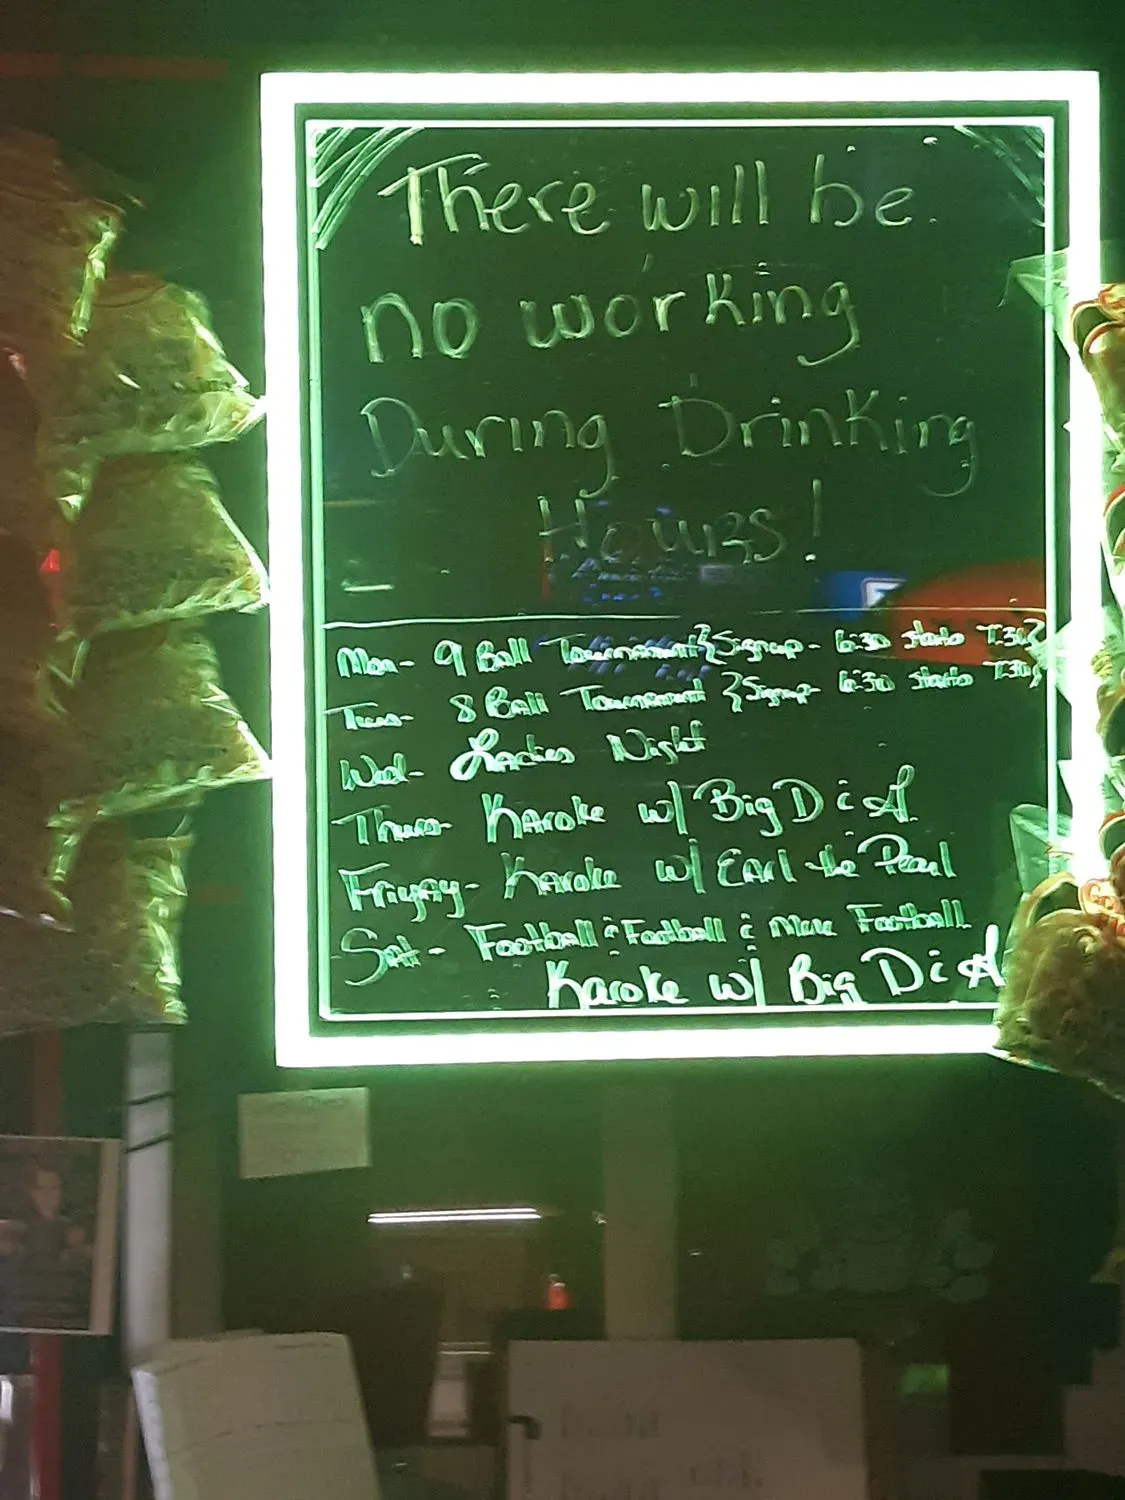 There will be
no working
During Drinking
Hours!
Mon- 9 Ball Tournament {Signup- 6:30 starts 7:30}
Tues- 8 Ball Tournament {Signup- 6:30 starts 7:30}
Wed- Ladies Night
Thurs- Karoke w/ Big D & A
Friyay- Karoke w/ Earl the Pearl
Sat- Football & Football & More Football
Karoke w/ Big D & A